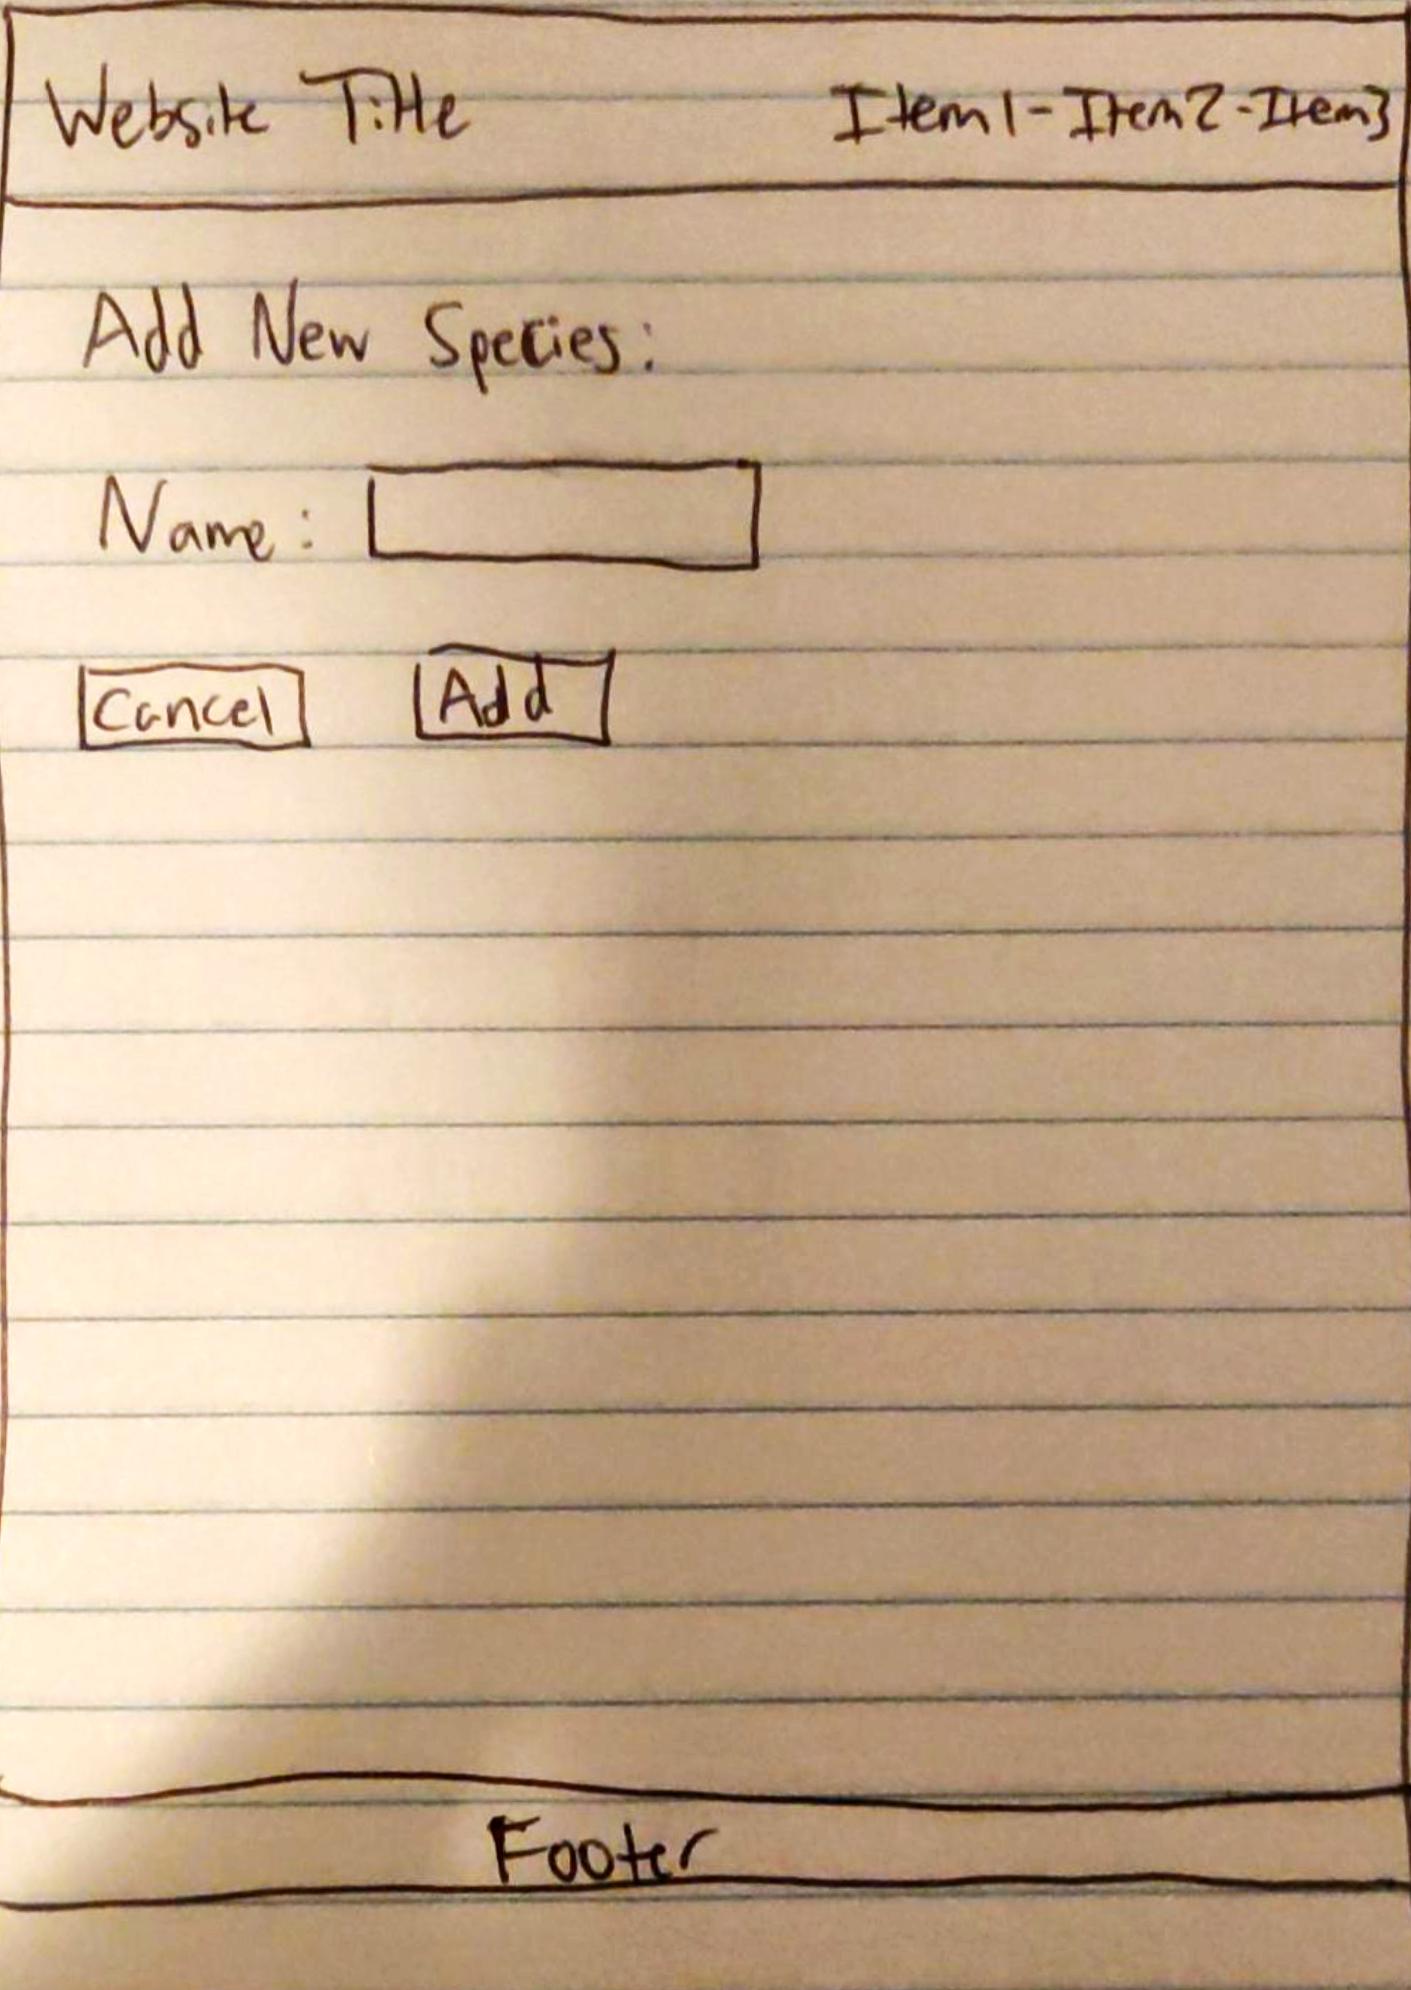 Website Title Item1-Item2-Item3
Add New Species:
Name:
Cancel Add
Footer